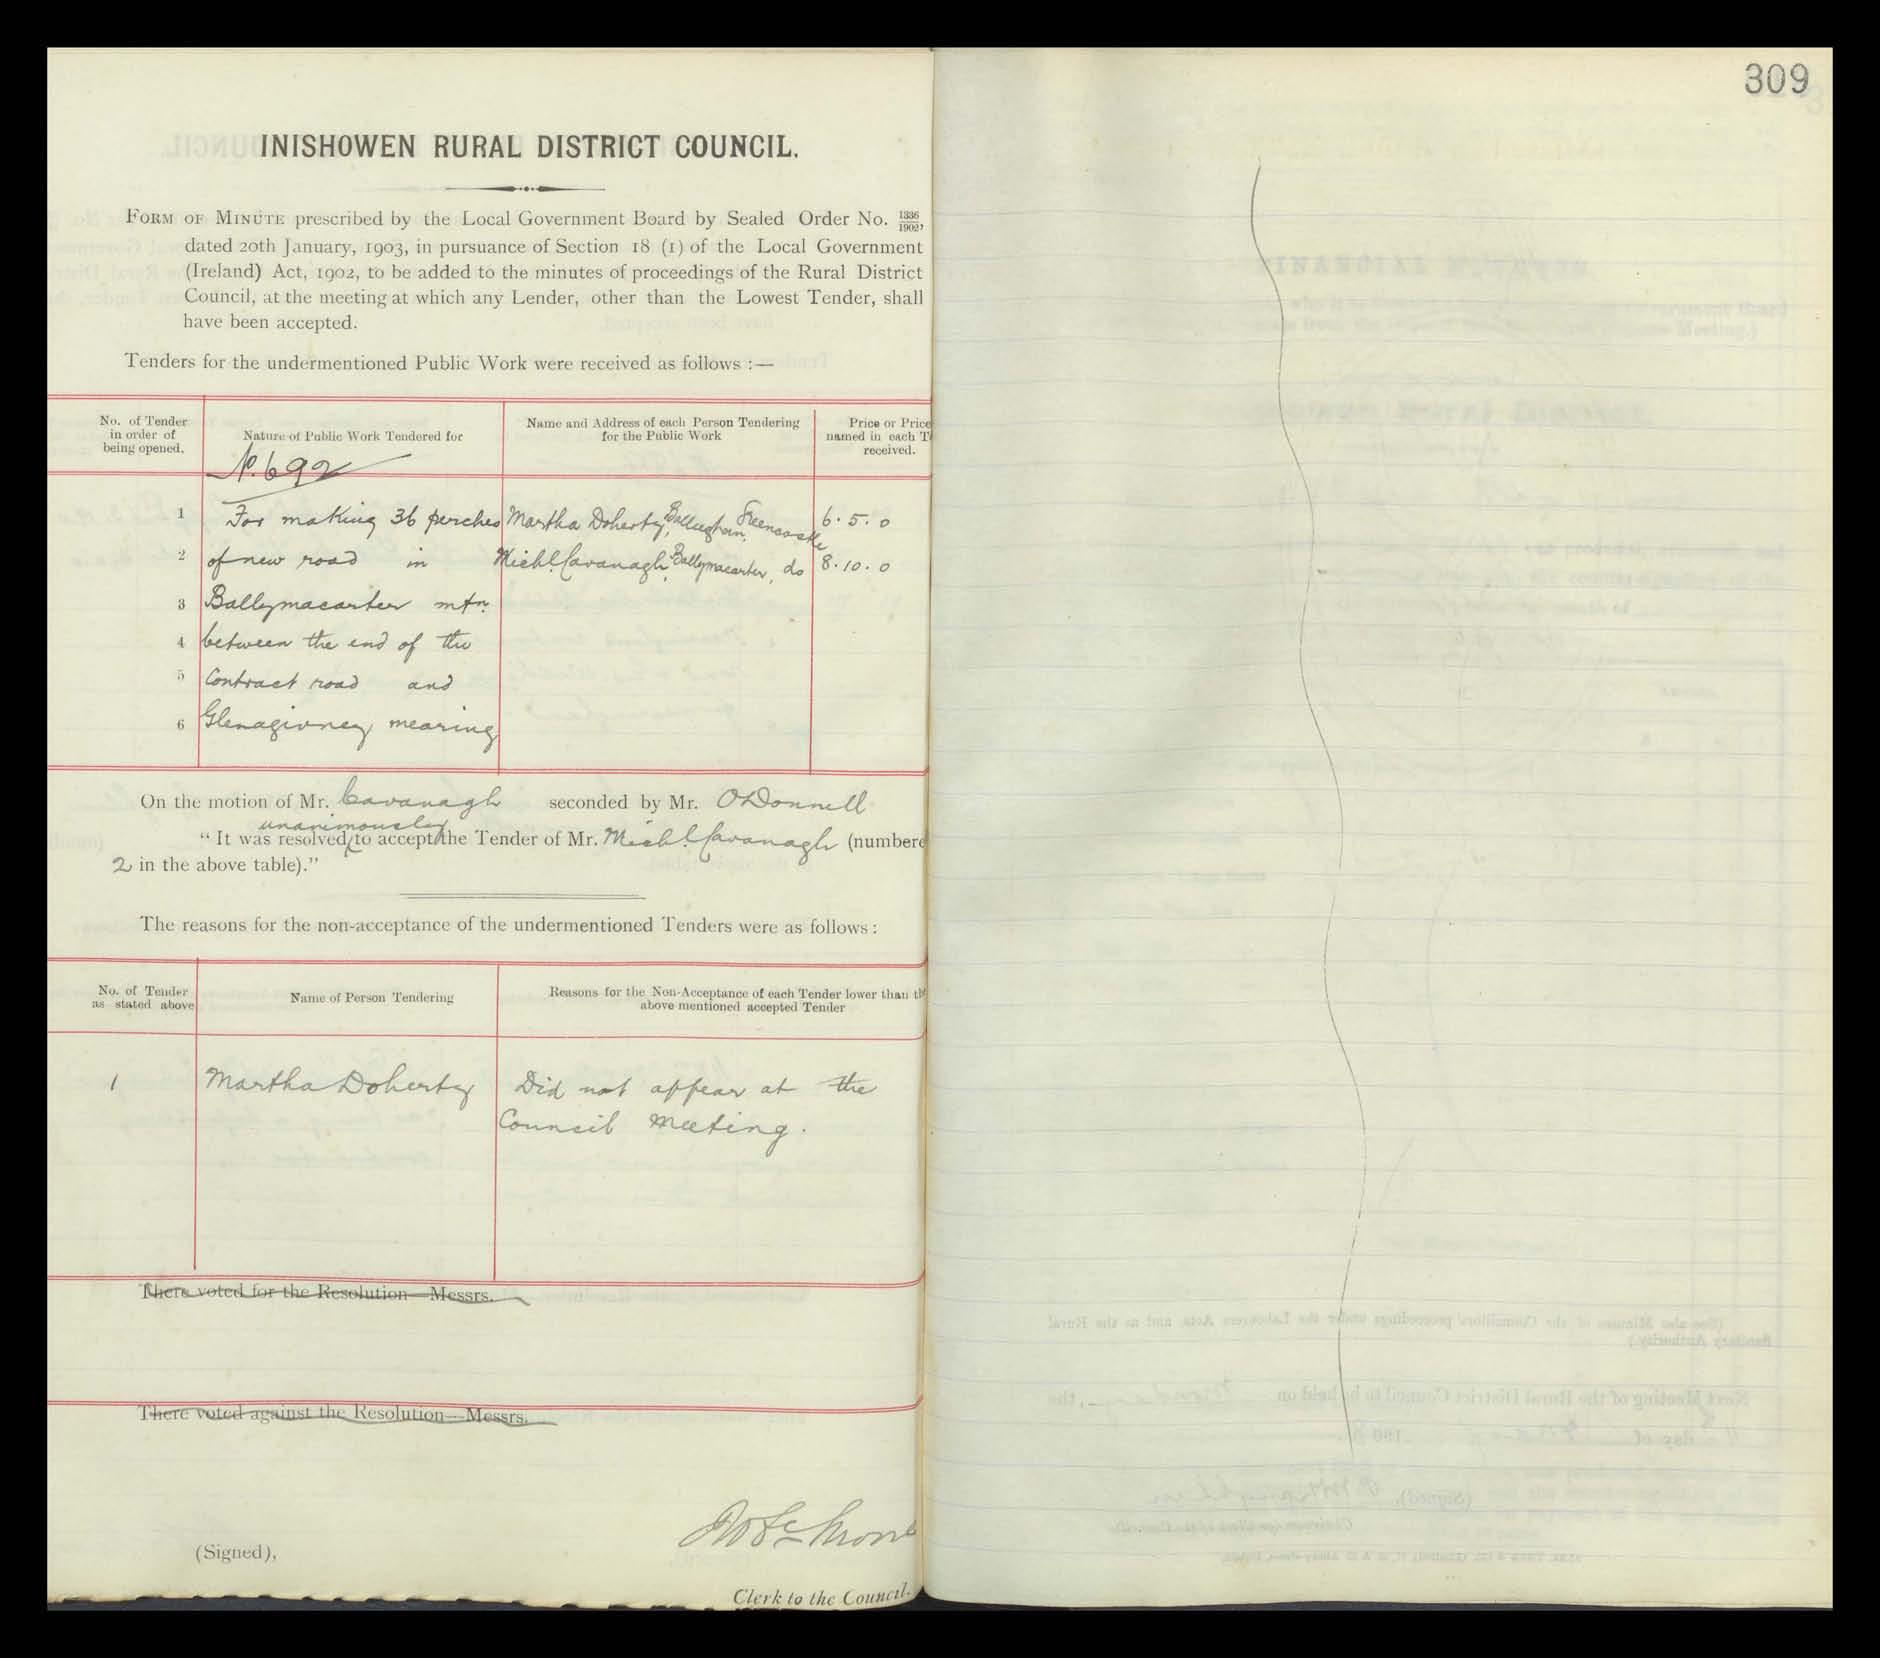 309
INISHOWEN RURAL DISTRICT COUNCIL.
FORM OF MINUTE prescribed by the Local Government Board by Sealed Order No. 1336/1902,
dated 20th January, 1903, in pursuance of Section 18 (1) of the Local Government
(Ireland) Act, 1902, to be added to the minutes of proceedings of the Rural District
Council, at the meeting at which any Lender, other than the Lowest Tender, shall
have been accepted.
Tenders for the undermentioned Public Work were received as follows :—
No. of Tender
in order of
being opened.
Nature of Public Work Tendered for
Name and Address of each Person Tendering
for the Public Work
Price or Price
named in each T
received.
No. 692
1 For making 36 perches Martha Doherty, Ballaghan, Greencastle 6. 5. 0
2 of new road in Michl. Cavanagh, Ballymacarter, do 8. 10. 0
3 Ballymacarter mtn.
4 between the end of the
5 Contract road and
6 Glenagivney mearing
On the motion of Mr. Cavanagh seconded by Mr. O'Donnell
unanimously
“ It was resolved to accept the Tender of Mr. Michl. Cavanagh (numbere
2 in the above table).”
The reasons for the non-acceptance of the undermentioned Tenders were as follows :
No. of Tender
as stated above
Name of Person Tendering
Reasons for the Non-Acceptance of each Tender lower than the
above-mentioned accepted Tender
1 Martha Doherty Did not appear at the
Council Meeting.
There voted for the Resolution—Messrs.
There voted against the Resolution—Messrs.
(Signed),
Clerk to the Council.